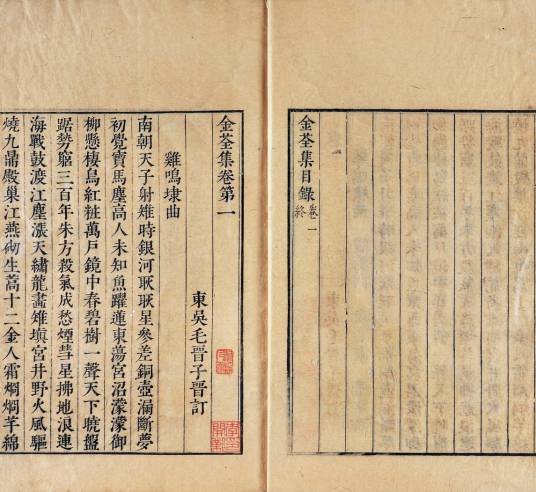 金荃集目錄
卷一
終
金荃集卷第一
東吳毛晉子晉訂
雞鳴埭曲
南朝天子射雉時銀河耿耿星參差銅壺漏斷夢
初覺寶馬塵高人未知魚躍蓮東蕩宮沼濛濛御
柳懸棲鳥紅粧萬戶鏡中春碧樹一聲天下曉盤
踞勢窮三百年朱方殺氣成愁煙彗星拂地浪連
海戰鼓渡江塵漲天繡龍畫雉塡宮井野火風驅
燒九鼎殿巢江燕砌生蒿十二金人霜烱烱芊綿